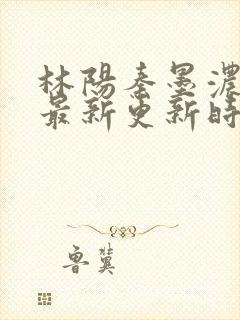 林陽秦墨濃
最新更新時
魯冀